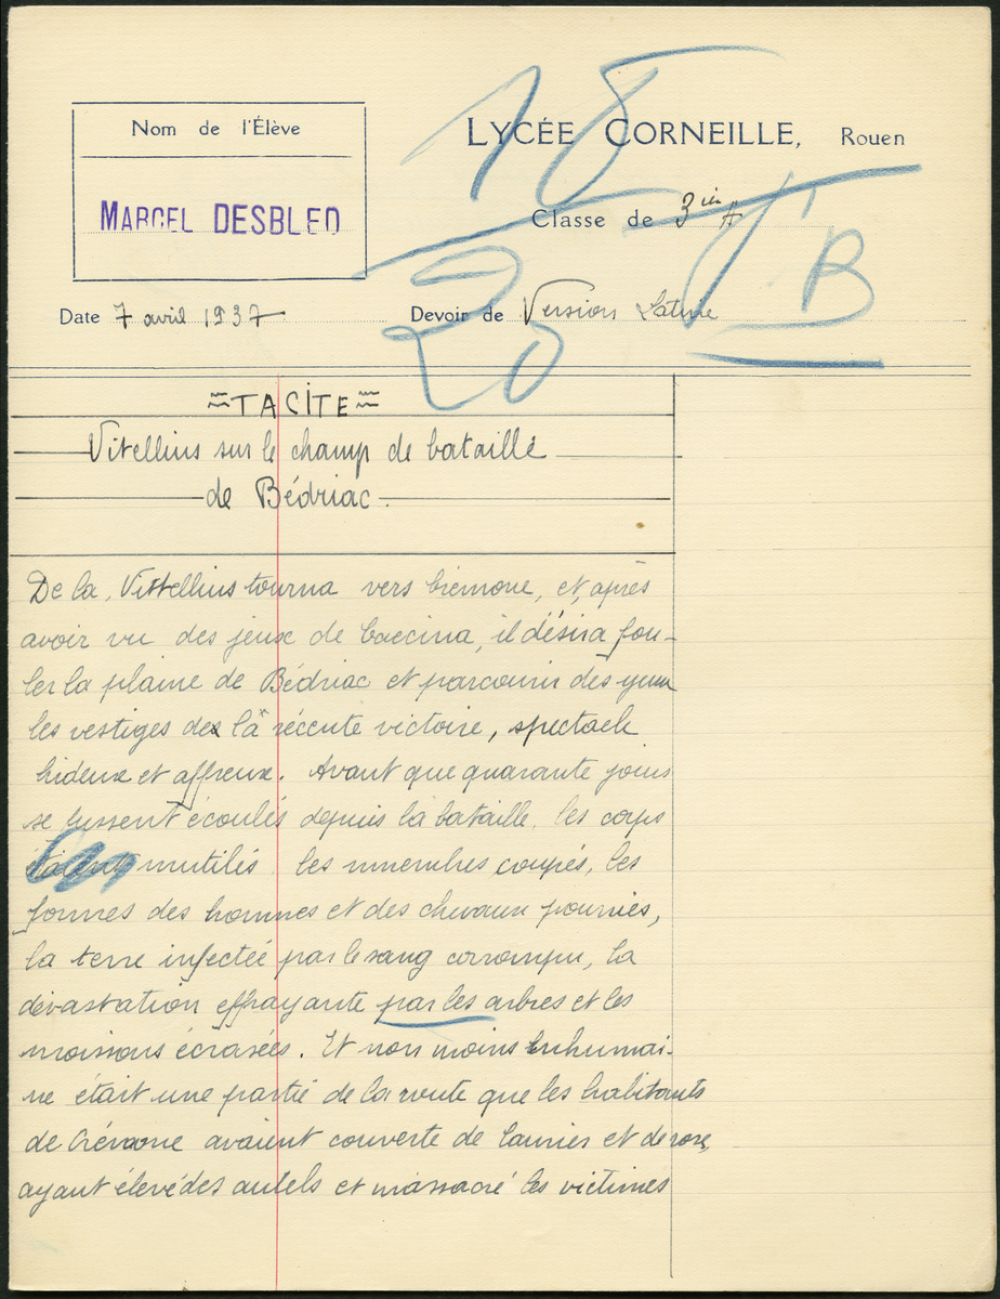 Nom de l'Élève
MARCEL DESBLED
LYCÉE CORNEILLE, Rouen
Classe de 3ième A
18
20
TB
Date 7 avril 1937
Devoir de Version Latine
≈TACITE≈
Vitellius sur le champ de bataille
de Bédriac.
De la, Vittellius tourna vers Crémone, et, après
avoir vu des jeux de Caecina, il désira fou-
ler la plaine de Bédriac et parcourir des yeux
les vestiges de la récente victoire, spectacle
hideux et affreux. Avant que quarante jours
se fussent écoulés depuis la bataille, les corps
étaient mutilés, les membres coupés, les
formes des hommes et des chevaux pourries,
la terre infectée par le sang corrompu, la
dévastation effrayante par les arbres et les
moissons écrasées. Et non moins inhumai-
ne était une partie de la route que les habitants
de Crémone avaient couverte de lauriers et de rose,
ayant élevé des autels et massacré les victimes